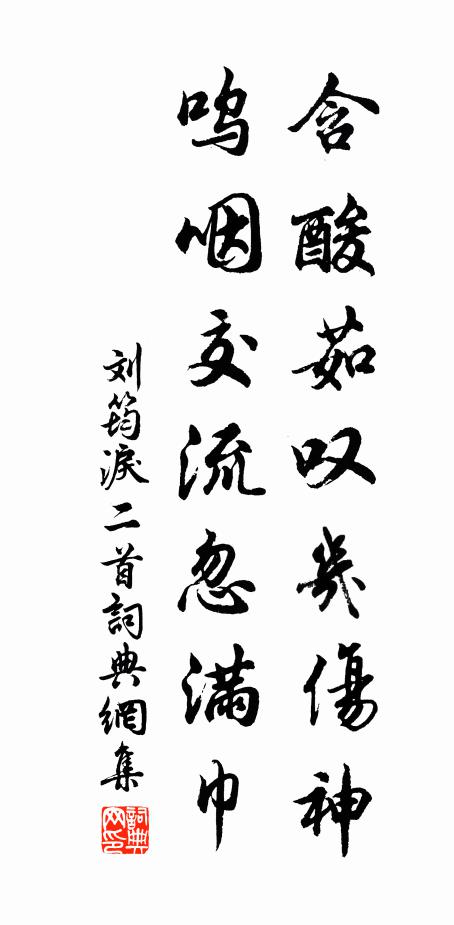 含酸茹叹幾傷神
呜咽交流忽满巾
刘筠淚二首詞典網集
詞典网印